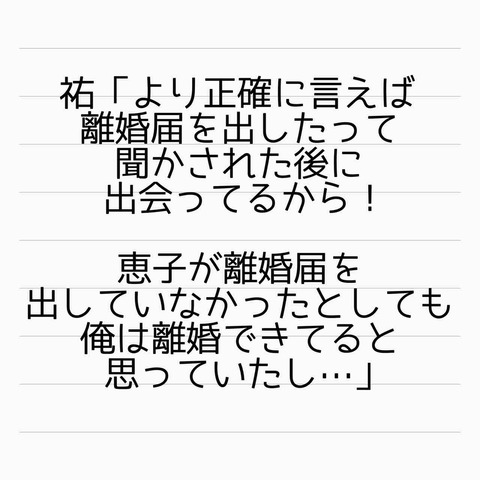 祐「より正確に言えば
離婚届を出したって
聞かされた後に
出会ってるから！
恵子が離婚届を
出していなかったとしても
俺は離婚できてると
思っていたし…」